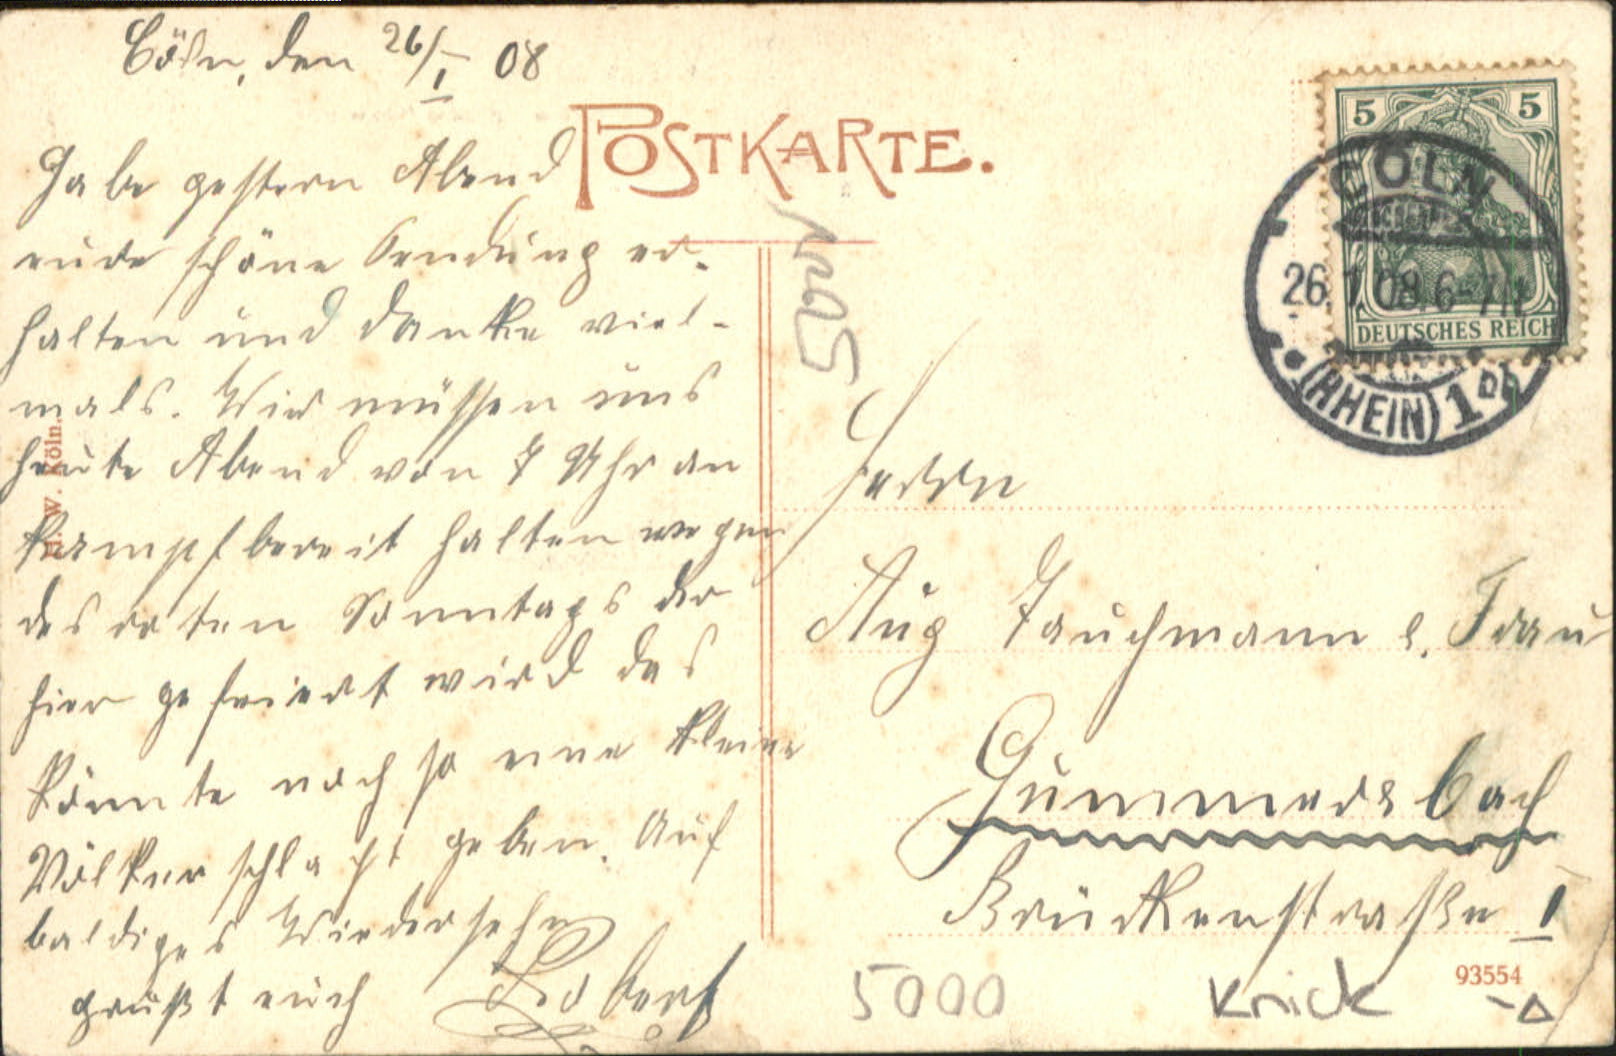 Cöln, den 26/I 08
POSTKARTE.
Habe gestern Abend
eure schöne Sendung er-
halten und danke viel-
mals. Wir müssen uns
heute Abend von 7 Uhr an
kampfbereit halten wegen
des roten Sonntags der
hier gefeiert wird das
könnte noch so eine kleine
Völkerschlacht geben. Auf
baldiges Wiedersehn
grüßt euch
W. Köln.
5 5
DEUTSCHES REICH
CÖLN
26.1.08.6-7N.
(RHEIN) 1
Herrn
Aug Tauchmann u. Frau
Gummersbach
Brückenstraße I
93554
5000
Knick